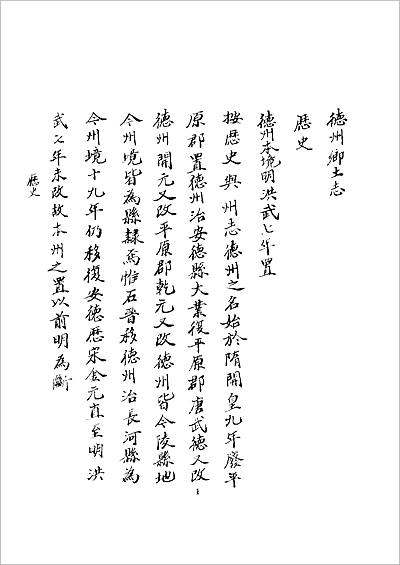 德州鄉土志
歷史
德州本境明洪武七年置
按歷史與州志德州之名始於隋開皇九年廢平
原郡置德州治安德縣大業復平原郡唐武德又改
德州開元又改平原郡乾元又改德州皆今陵縣地
今州境皆為縣隸焉惟石晉移德州治長河縣為
今州境十九年仍移復安德歷宋金元直至明洪
武七年永改故本州之置以前明為斷
歷史